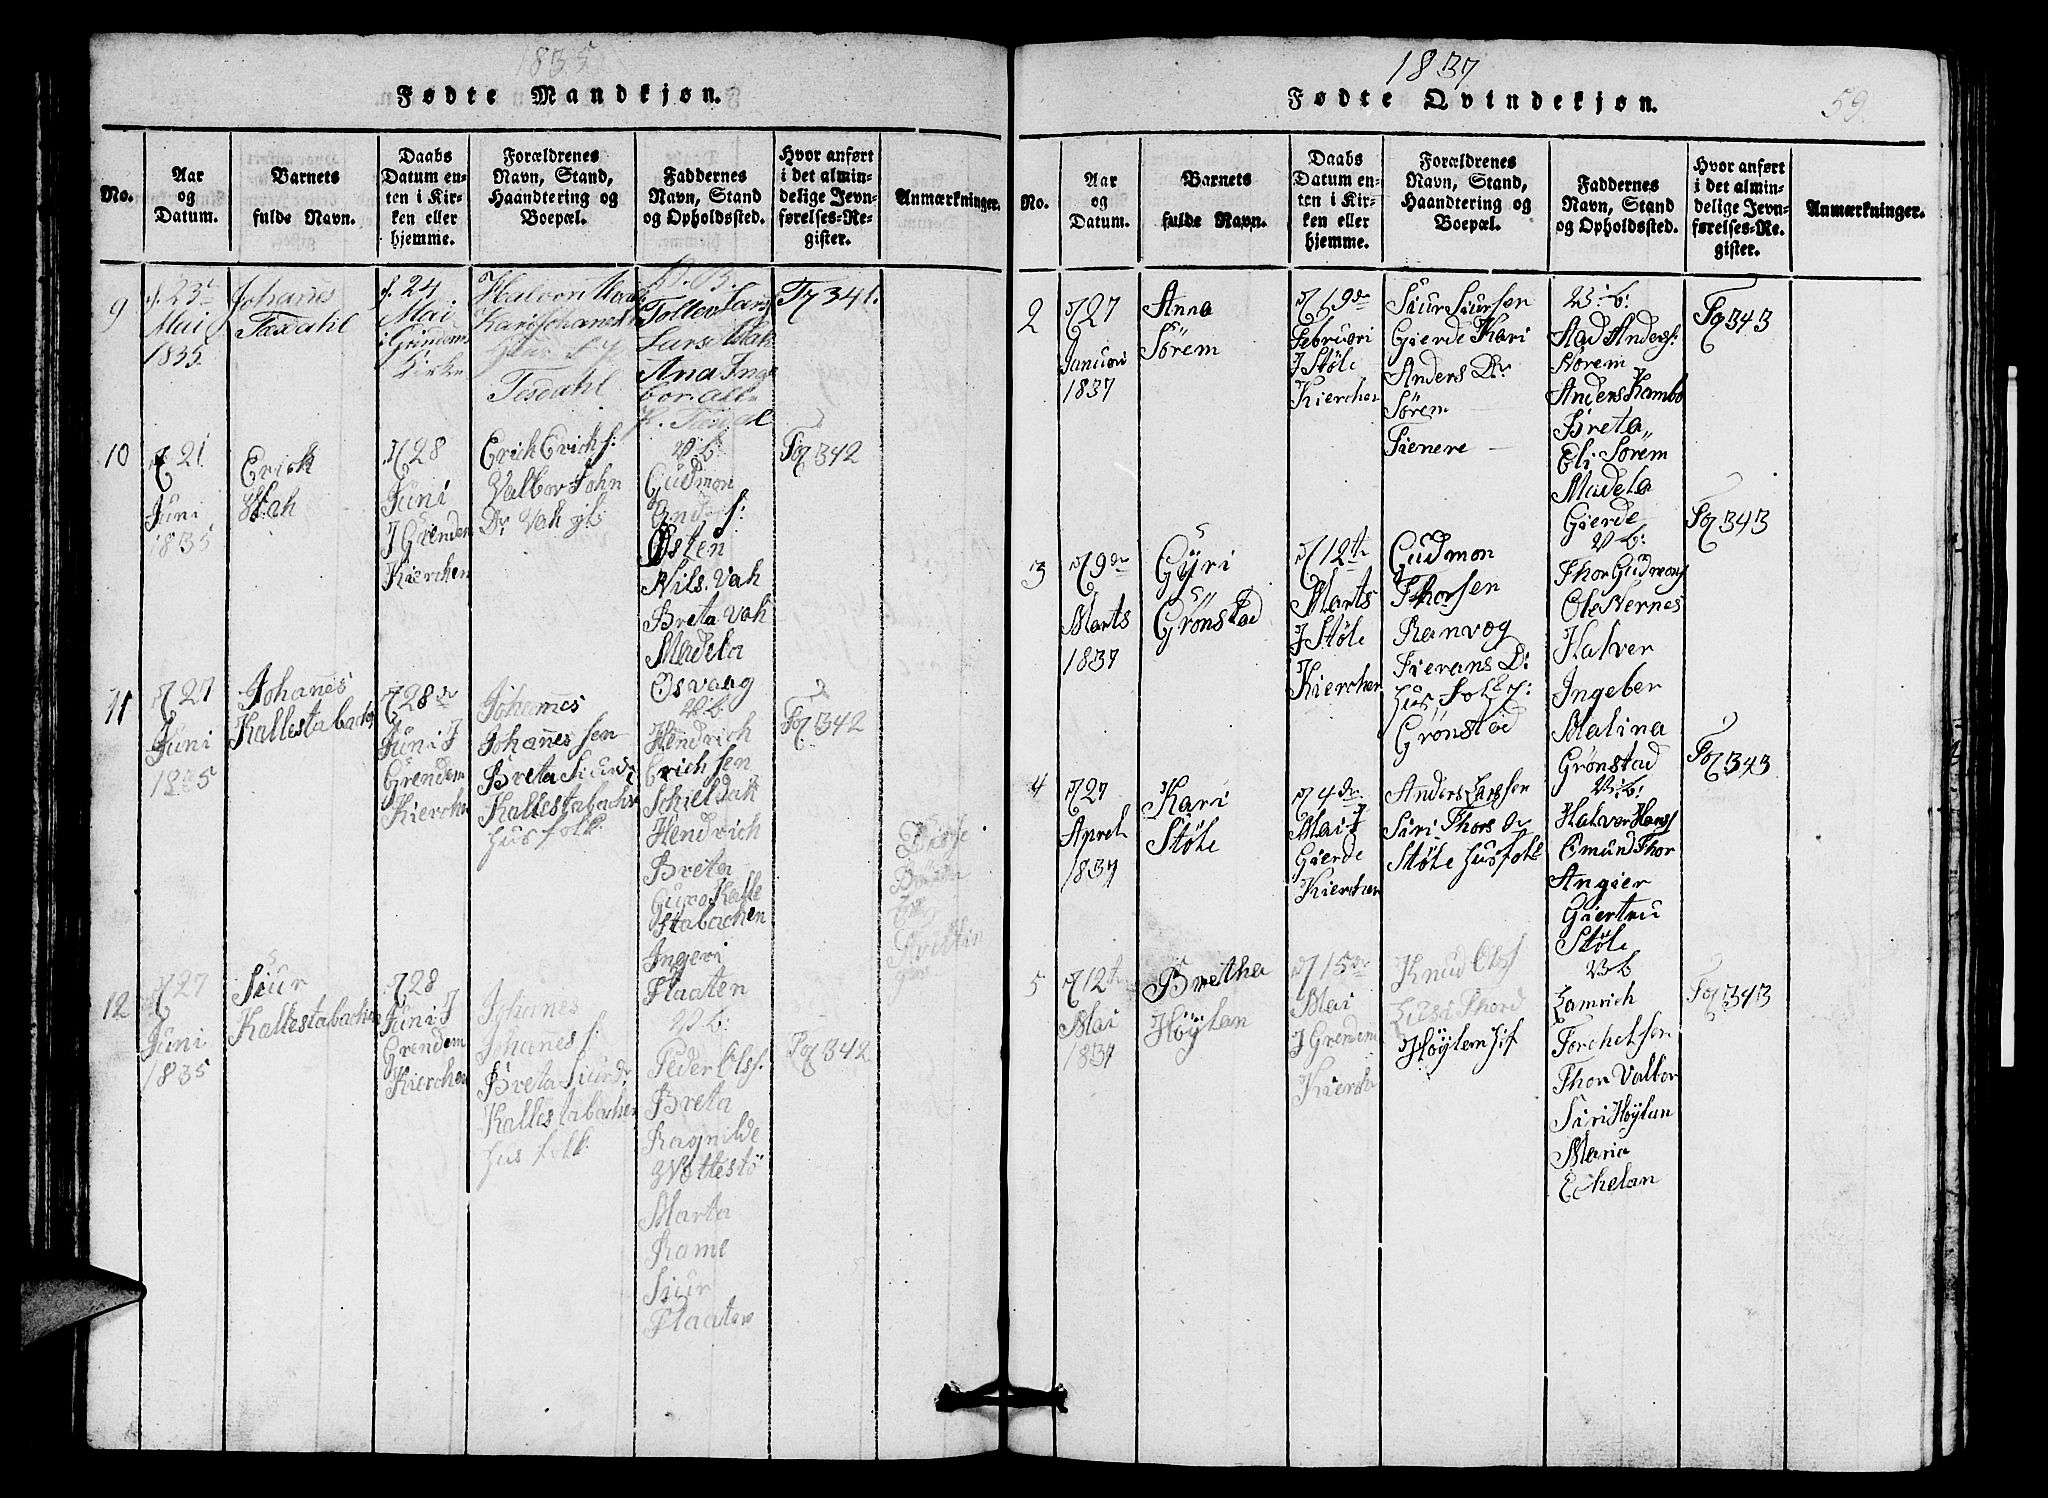 1835
Fødte Mandkjøn.
No.
Aar
og
Datum.
Barnets
fulde Navn.
Daabs
Datum en-
ten i Kir-
ken eller
hjemme.
Forældrenes
Navn, Stand,
Haandtering og
Boepæl.
Faddernes
Navn, Stand
og Opholdssted.
Hvor anført
i det almin-
delige Jevn-
førelses-Re-
gister.
Anmærkninger.
9
d. 23
Mai
1835
Johanes
Tesdahl
d. 24
Mai
i Grindem
Kirke
Tesdahl
Lars
Ana Inge
341.
10
21
Juni
1835
Erich
Vah
28
Juni
I Grendem
Kierchen
Erich Erichs:
Valbor John
Dr Vah
v b:
Gudmon
Østen
Nils. Vah
Breta Vah
Madela
Osvaag
342
11
27
Juni
1835
Johanes
Kallestabach
28de
Juni I
Grendem
Kierchen
Johannes
Johannessen
Breta Siurd
Kallestabachen
hus folk
v b:
Hendrich
Erichsen
Schieldah
Hendrich
Breta
Guro Kalle
stabachen
Ingeri
Flaaten
342
12
27
Juni
1835
Siur
Kallestabachen
28
Juni I
Grendem
Kierchen
Johanes
Johanes f.
Breta Siurd
Kallestabachen
hus folk
v b:
Peder Olss.
Breta
Ragnilde
Marta
Rame
Siur
Flaaten
342
1837
59.
Fødte Qvindekjøn.
No.
Aar
og
Datum.
Barnets
fulde Navn.
Daabs
Datum en-
ten i Kir-
ken eller
hjemme.
Forældrenes
Navn, Stand,
Haandtering og
Boepæl.
Faddernes
Navn, Stand
og Opholdssted.
Hvor anført
i det almin-
delige Jevn-
førelses-Re-
gister.
Anmærkninger.
2
27
Januari
1837
Anna
Sørem
19de
Februari
I Støle
Kierchen
Siur Siursen
Gierde Kari
Anders Dr
Sørem
Tienere
v. b:
Aad Anders:
Sørem
Anders Kambo
Breta
Eli Sørem
Madela
Gierde
343
3
9de
Marts
1837
Gyri
Grønstad
12te
Marts
I Støle
Kierchen
Gudmon
Thorsen
Ranvog
Tierans D:
hus folk
Grønstad
v b:
Thor Gudmons
Ole Nernes
Halver
Ingeber
Malina
Grønstad
343
4
27
Aprel
1837
Kari
Støle
4de
Mai I
Gierde
Kierchen
Anders Larssen
Siri Thors Dr
Støle husfolk
v. b:
Halver Hans
Omund Thor
Angier
Giertru
Støle
343
5
12te
Mai
1837
Bretha
Høylan
15de
Mai
I Grendem
Kierche
Knud Olss
Thord
Høylem
v b
Lamrich
Torchelsen
Thor Valbor
Siri Høylan
Maria
Echelan
343